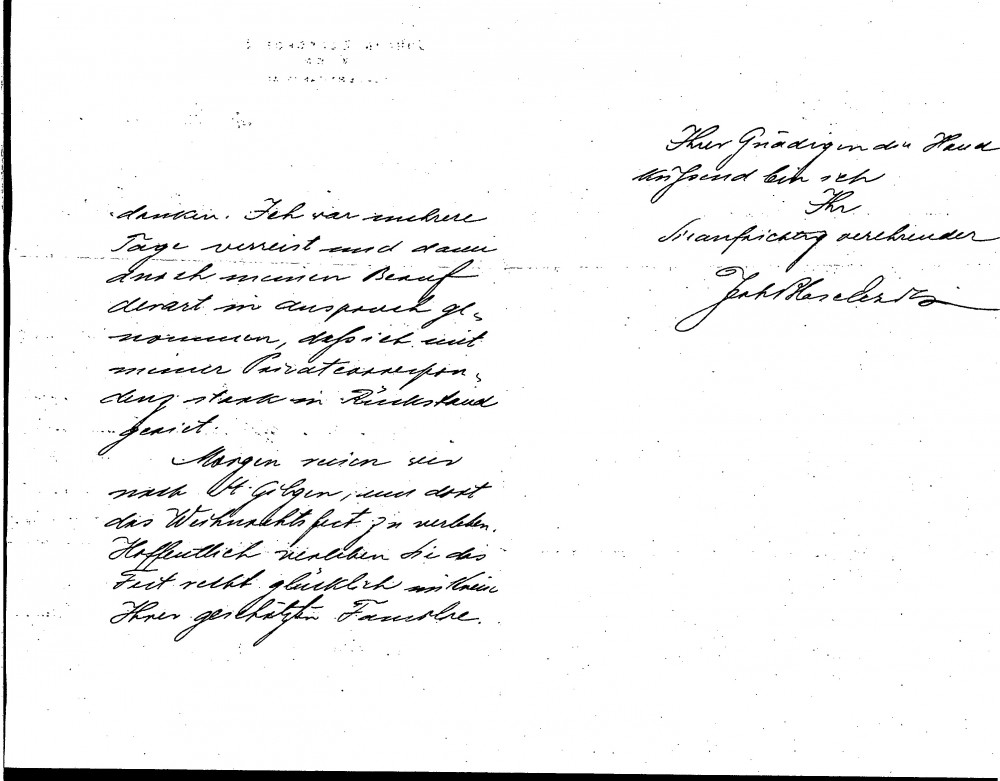 danken. Ich war mehrere
Tage verreist und dann
durch meinen Beruf
derart in Anspruch ge-
nommen, daß ich mit
meiner Privatcorrespon-
denz stark in Rückstand
geriet.
Morgen reisen wir
nach St. Gilgen, um dort
das Weihnachtsfest zu verleben.
Hoffentlich verleben Sie das
Fest recht glücklich im Kreise
Ihrer geschätzten Familie.
Ihrer Gnädigen die Hand
küssend bin ich
Ihr
Sie aufrichtig verehrender